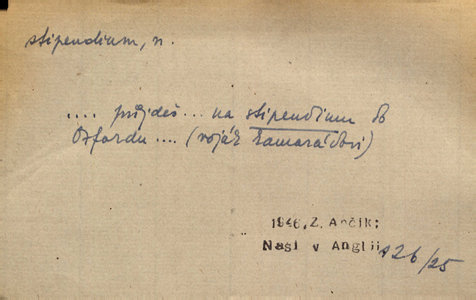 stipendium, n.
.... přijdeš... na stipendium do
Oxfordu.... (voják kamarádovi)
1946, Z. Ančík:
Naši v Anglii
s26/25